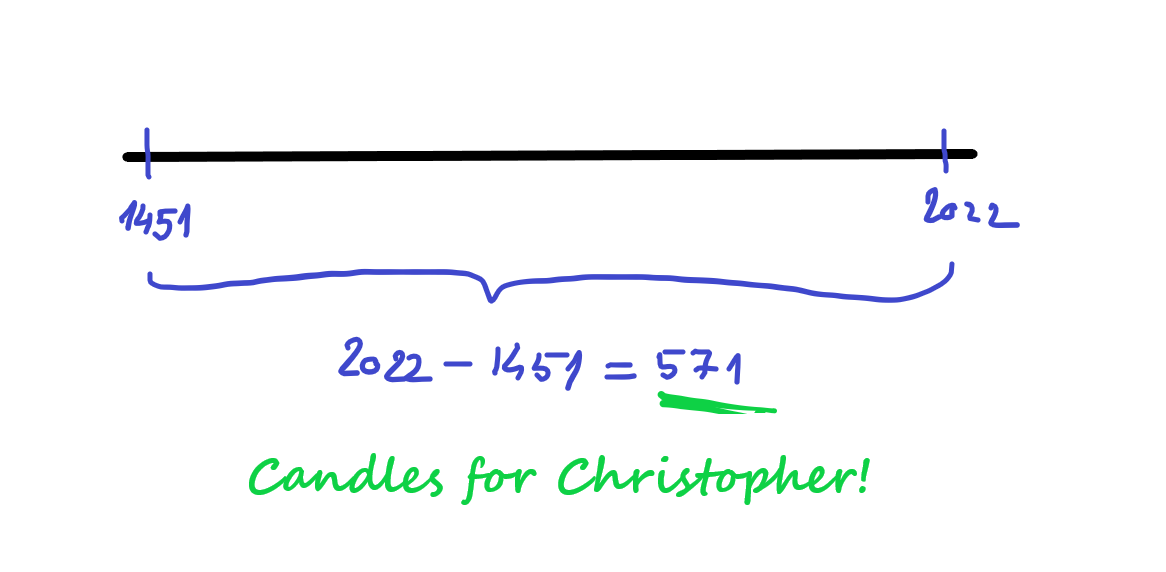 1451 2022
2022 - 1451 = 571
Candles for Christopher!